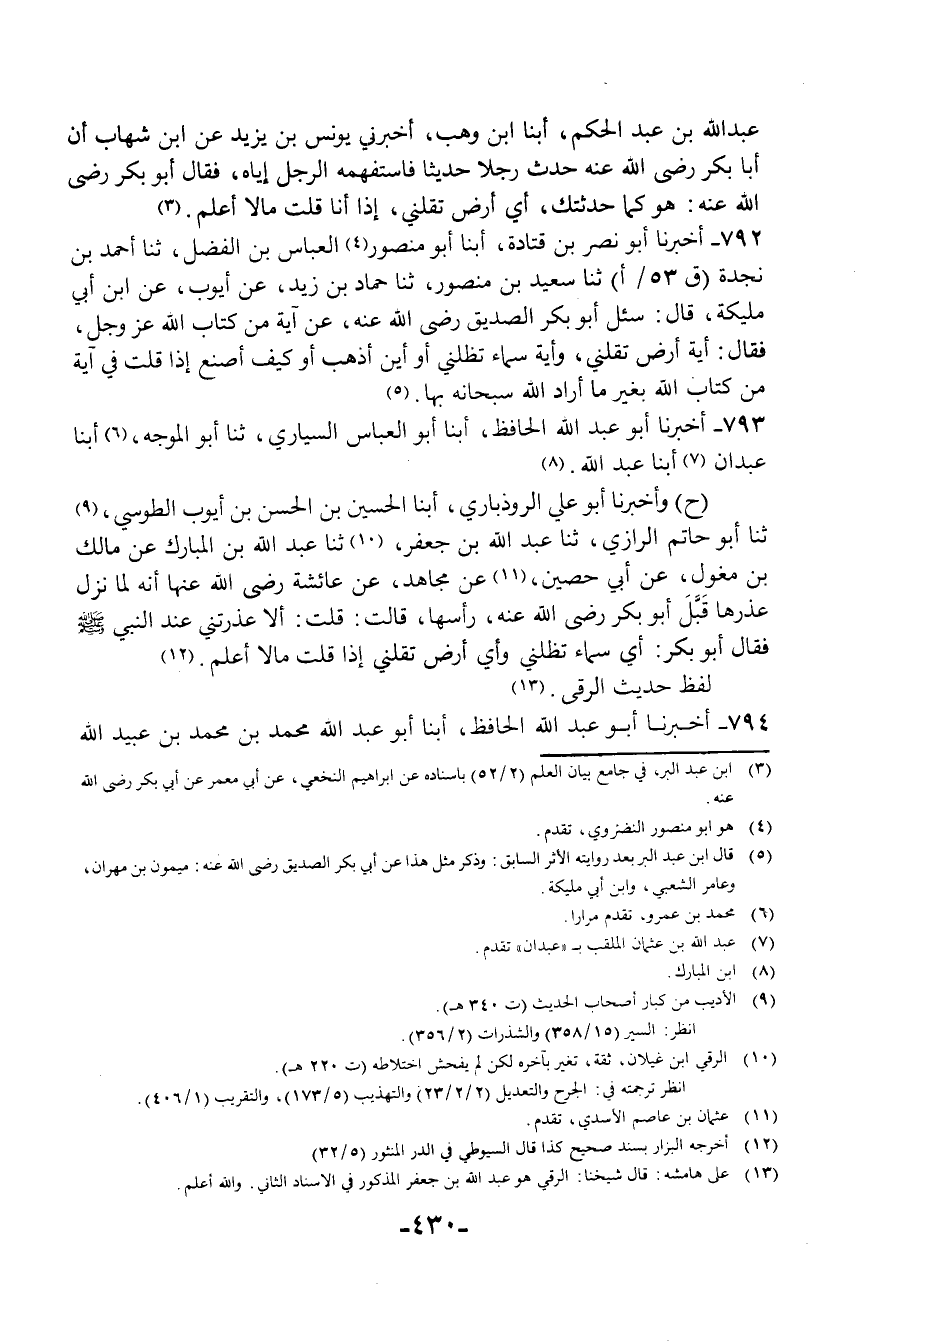 عبدالله بن عبد الحكم، أبنا ابن وهب، أخبرني يونس بن يزيد عن ابن شهاب أن
أبا بكر رضى الله عنه حدث رجلا حديثا فاستفهمه الرجل إياه، فقال أبو بكر رضى
الله عنه: هو كما حدثتك، أي أرض تقلني، إذا أنا قلت مالا أعلم. (٣)
٧٩٢ـ أخبرنا أبو نصر بن قتادة، أبنا أبو منصور(٤) العباس بن الفضل، ثنا أحمد بن
نجدة (ق ٥٣/ أ) ثنا سعيد بن منصور، ثنا حماد بن زيد، عن أيوب، عن ابن أبي
مليكة، قال: سئل أبو بكر الصديق رضى الله عنه، عن آية من كتاب الله عز وجل،
فقال: أية أرض تقلني، وأية سماء تظلني أو أين أذهب أو كيف أصنع إذا قلت في آية
من كتاب الله بغير ما أراد الله سبحانه بها. (٥)
٧٩٣ـ أخبرنا أبو عبد الله الحافظ، أبنا أبو العباس السياري، ثنا أبو الموجه، (٦) أبنا
عبدان (٧) أبنا عبد الله. (٨)
(ح) وأخبرنا أبو علي الروذباري، أبنا الحسين بن الحسن بن أيوب الطوسي، (٩)
ثنا أبو حاتم الرازي، ثنا عبد الله بن جعفر، (١٠) ثنا عبد الله بن المبارك عن مالك
بن مغول، عن أبي حصين، (١١) عن مجاهد، عن عائشة رضى الله عنها أنه لما نزل
عذرها قَبَّلَ أبو بكر رضى الله عنه، رأسها، قالت: قلت: ألا عذرتني عند النبي ﷺ
فقال أبو بكر: أي سماء تظلني وأي أرض تقلني إذا قلت مالا أعلم. (١٢)
لفظ حديث الرقى. (١٣)
٧٩٤ـ أخبرنا أبو عبد الله الحافظ، أبنا أبو عبد الله محمد بن محمد بن عبيد الله
(٣) ابن عبد البر، في جامع بيان العلم (٥٢/٢) باسناده عن ابراهيم النخعي، عن أبي معمر عن أبي بكر رضى الله
عنه.
(٤) هو ابو منصور النضروي، تقدم.
(٥) قال ابن عبد البر بعد روايته الأثر السابق: وذكر مثل هذا عن أبي بكر الصديق رضى الله عنه: ميمون بن مهران،
وعامر الشعبي، وابن أبي مليكة.
(٦) محمد بن عمرو، تقدم مرارا.
(٧) عبد الله بن عثمان الملقب بـ «عبدان» تقدم.
(٨) ابن المبارك.
(٩) الأديب من كبار أصحاب الحديث (ت ٣٤٠ هـ).
انظر: السير (٣٥٨/١٥) والشذرات (٣٥٦/٢).
(١٠) الرقي ابن غيلان، ثقة، تغير بآخره لكن لم يفحش اختلاطه (ت ٢٢٠ هـ).
انظر ترجمته في: الجرح والتعديل (٢٣/٢/٢) والتهذيب (١٧٣/٥)، والتقريب (٤٠٦/١).
(١١) عثمان بن عاصم الأسدي، تقدم.
(١٢) أخرجه البزار بسند صحيح كذا قال السيوطي في الدر المنثور (٣٢/٥)
(١٣) على هامشه: قال شيخنا: الرقي هو عبد الله بن جعفر المذكور في الاسناد الثاني. والله أعلم.
-٤٣٠-